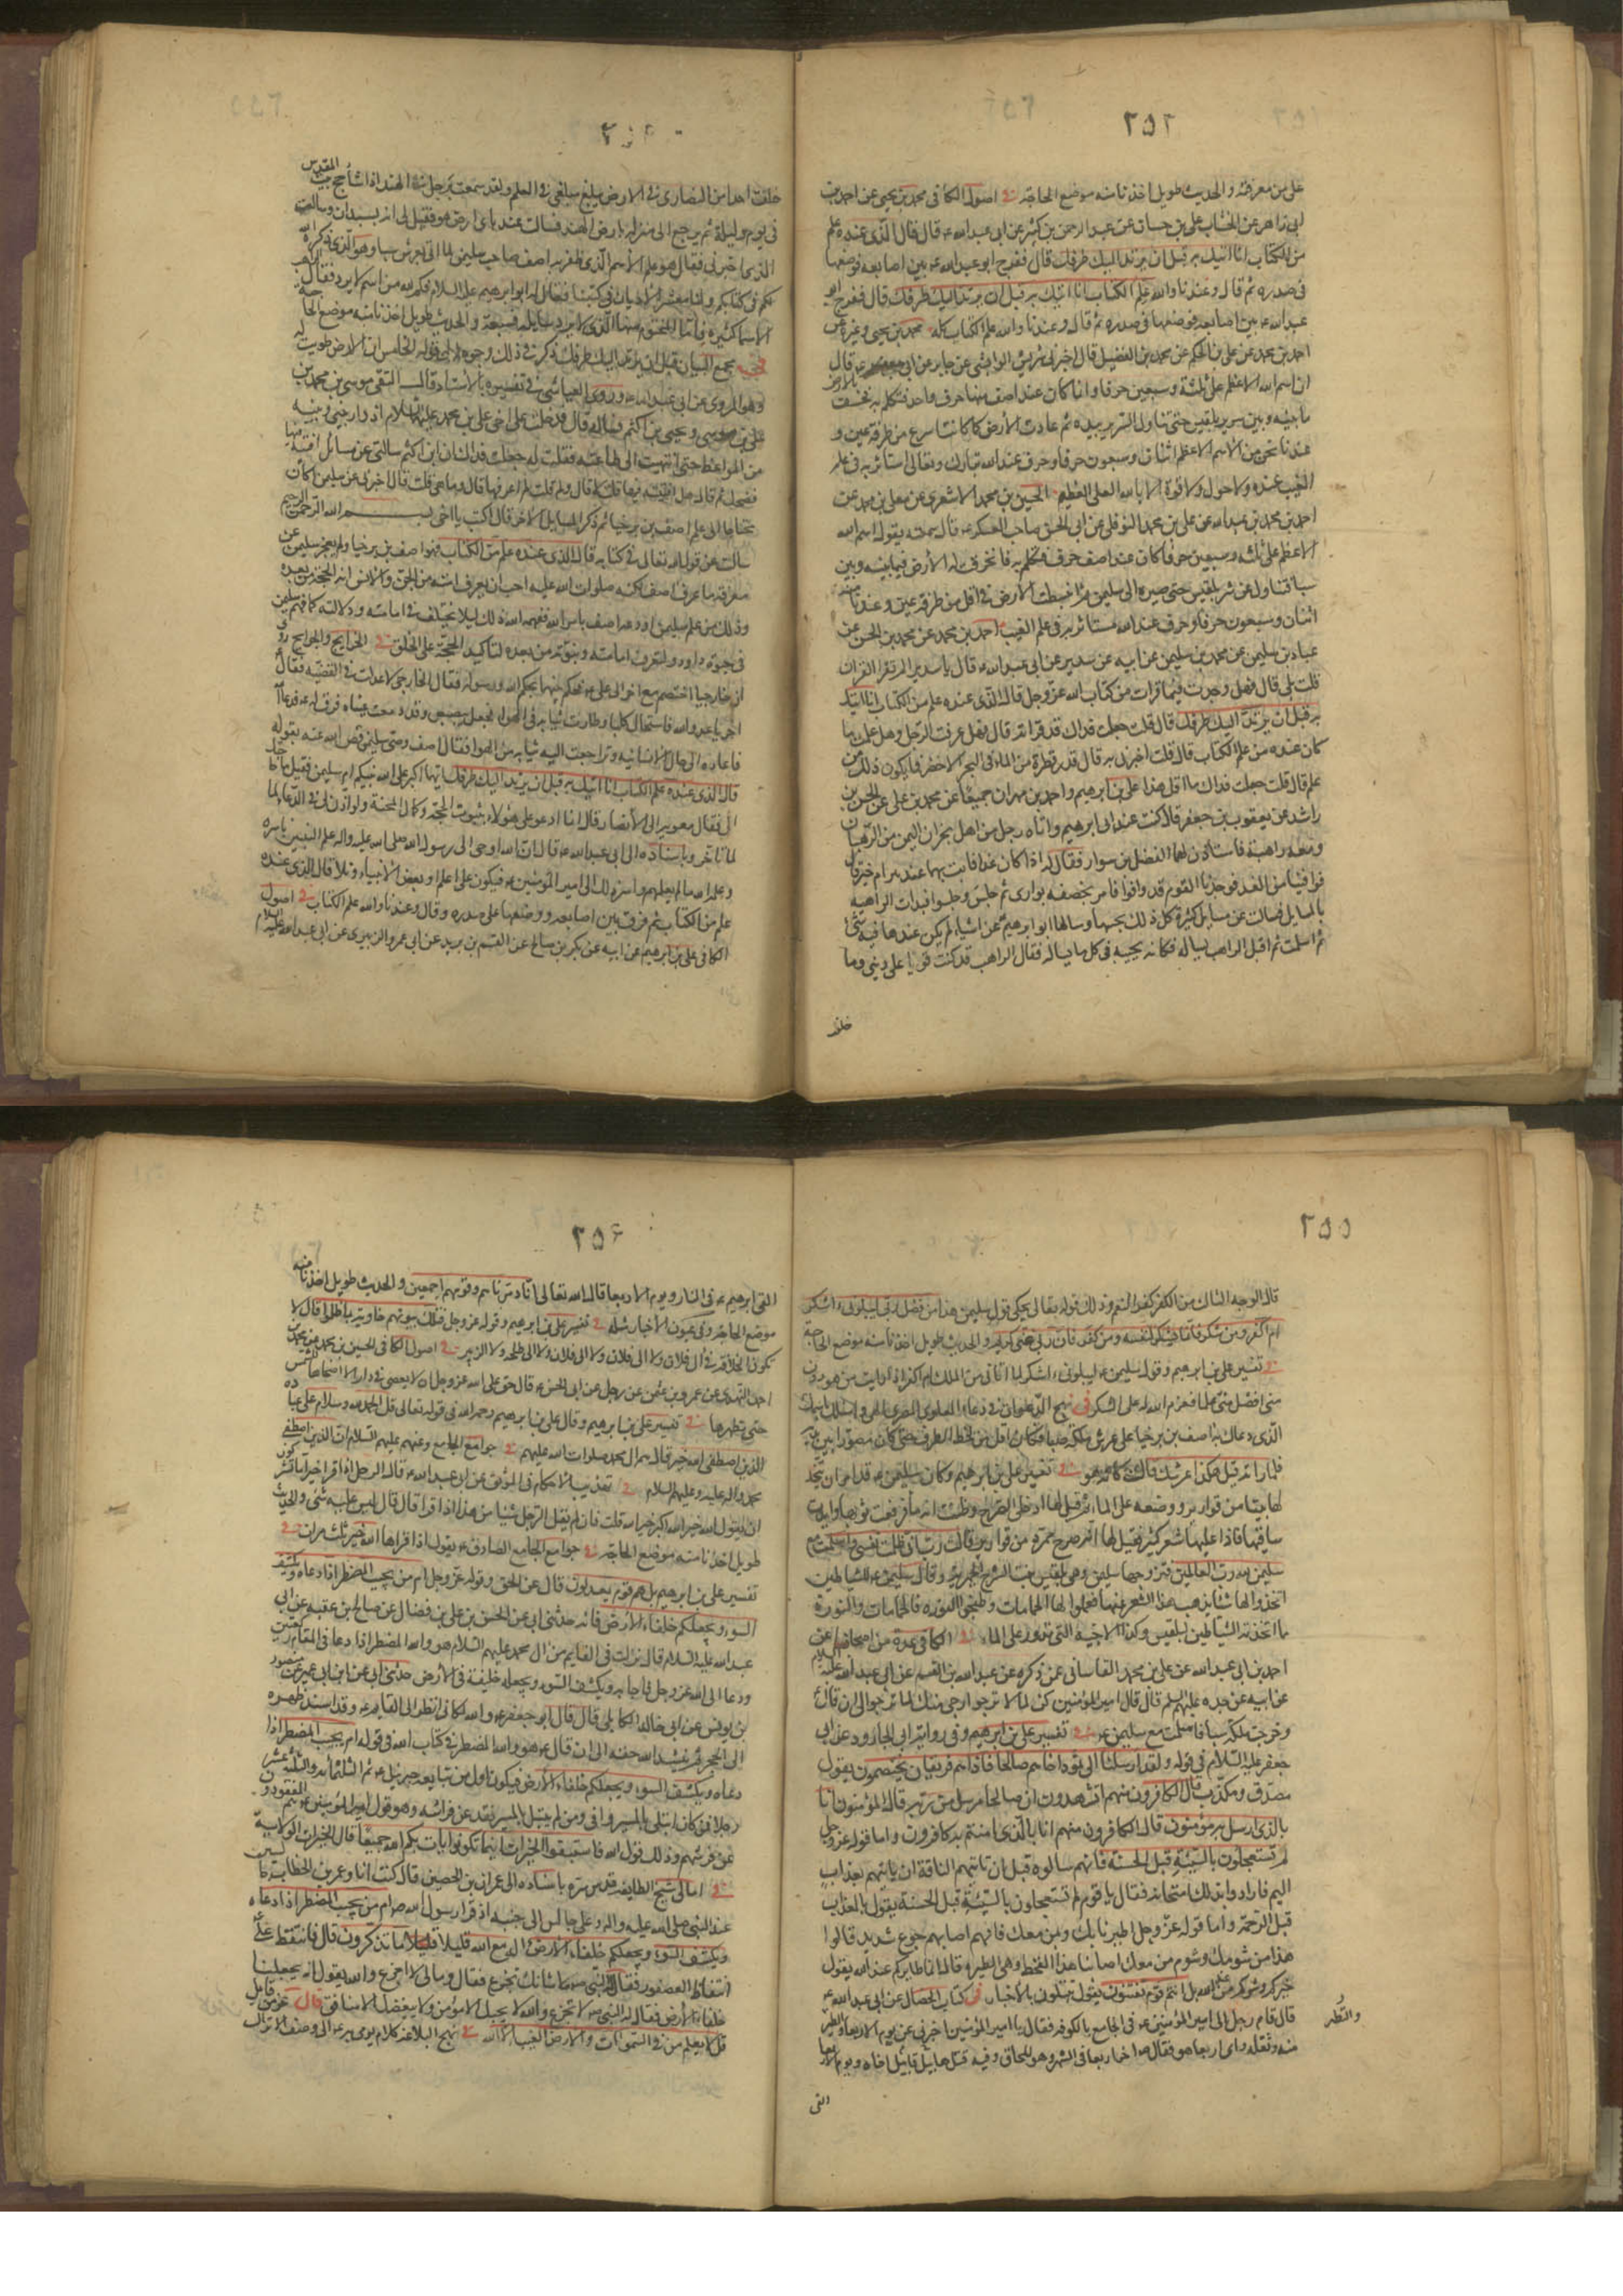 ٢٥٢
على من معرفته والحديث طويل اخذنا منه موضع الحاجة في اصول الكافي محمد بن يحيى عن احمد بن
ابى زاهر عن الخشاب على بن حسان عن عبد الرحمن بن كثير عن ابى عبد الله ع قال قال الذى عنده علم
من الكتاب انا اتيك به قبل ان يرتد اليك طرفك قال ففرج ابو عبد الله ع بين اصابعه فوضعها
فى صدره ثم قال وعندنا والله علم الكتاب انا اتيك به قبل ان يرتد اليك طرفك قال ففرج ابو
عبد الله ع بين اصابعه فوضعها فى صدره ثم قال وعندنا والله علم الكتاب كله محمد بن يحيى وغيره عن
احمد بن محمد عن على بن الحكم عن محمد بن الفضيل قال اخبرنى شريس الوابشى عن جابر عن ابى جعفر ع قال
ان اسم الله الاعظم على ثلثة وسبعين حرفا وانما كان عند اصف منها حرف واحد فتكلم به فخسف بالارض
ما بينه وبين سرير بلقيس حتى تناول السرير بيده ثم عادت الأرض كما كانت اسرع من طرفة عين و
عندنا نحن من الاسم الاعظم اثنان وسبعون حرفا وحرف عند الله تبارك وتعالى استاثر به فى علم
الغيب عنده ولا حول ولا قوة الا بالله العلى العظيم الحسين بن محمد الاشعرى عن معلى بن محمد عن
احمد بن محمد بن عبد الله عن على بن محمد النوفلى عن ابى الحسن صاحب العسكر ع قال سمعته يقول اسم الله
الاعظم على ثلثه وسبعين حرفا كان عند اصف حرف فتكلم به فانخرقت له الأرض فيما بينه وبين
سبا فتناول عرش بلقيس حتى صيره الى سليمن ثم انبسطت الأرض فى اقل من طرفة عين وعندنا منه
اثنان وسبعون حرفا وحرف عند الله مستاثر به فى علم الغيب احمد بن محمد عن محمد بن الحسن عن
عباد بن سليمن عن محمد بن سليمن عن ابيه عن سدير عن ابى عبد الله ع قال يا سدير الم تقرا القران
قلت بلى قال فهل وجدت فيما قرات من كتاب الله عز وجل قال الذى عنده علم من الكتاب انا اتيك
به قبل ان يرتد اليك طرفك قال قلت جعلت فداك قد قراته قال فهل عرفت الرجل وهل علمت ما
كان عنده من علم الكتاب قال قلت اخبرنى به قال قدر قطرة من الماء فى البحر الاخضر فما يكون ذلك من
علم قال قلت جعلت فداك ما اقل هذا على بن ابرهيم واحمد بن مهران جميعا عن محمد بن على عن الحسن بن
راشد عن يعقوب بن جعفر قال كنت عند ابى ابرهيم واتاه رجل من اهل نجران اليمن من الرهبان
ومعه راهبة فاستاذن لهما الفضل بن سوار فقال له اذا كان غدا فات بهما عند بئر ام خير قال
فوافينا من الغد فوجدنا القوم قد وافوا فامر بخصفه بوارى ثم جلس وجلسوا فبدات الراهبة
بالمسايل فسالت عن مسايل كثيرة كل ذلك يجيبها وسالها ابو ابرهيم ع عن اشياء لم يكن عندها فيه شئ
ثم اسلمت ثم اقبل الراهب يساله فكان يجيبه فى كل ما يساله فقال الراهب قد كنت قويا على دينى وما
خلفت
خلفت احدا من النصارى فى الارض يبلغ مبلغى فى العلم ولقد سمعت برجل فى الهند اذا شاء حج بيت المقدس
فى يوم وليلة ثم يرجع الى منزله بارض الهند فسالت عنه باى ارض هو فقيل لى انه بسبدان وسالت
الذى اخبرنى فقال هو علم الأسم الذى ظفر به اصف صاحب سليمن لما اتى بعرش سبا وهو الذى ذكره الله
لكم فى كتابكم ولنا معشر الاديان فى كتبنا فقال له ابو ابرهيم عليه السلام فكم لله من اسم لا يرد فقال الراهب
الاسماء كثيرة فاما المحتوم منها الذى لا يرد سايله فسبعة والحديث طويل اخذنا منه موضع الحاجة
فى مجمع البيان قبل ان يرتد اليك طرفك ذكر فى ذلك وجوه الى قوله الخامس ان الارض طويت له
وهو المروى عن ابى عبد الله ع وروى العياشى فى تفسيره بالاسناد قال التقى موسى بن محمد بن
على بن موسى ويحيى بن اكثم فساله قال فدخلت على اخى على بن محمد عليهما السلام اذ دار بينى وبينه
من المواعظ حتى انتهيت الى طاعته فقلت له جعلت فداك ان ابن اكثم سالنى عن مسائل افتيه فيها
فضحك ثم قال هل افتيته فيها قلت لا قال ولم قلت لم اعرفها قال وما هى قلت قال اخبرنى عن سليمن اكان
محتاجا الى علم اصف بن برخيا ثم ذكر المسايل الاخر قال اكتب يا اخى بسم الله الرحمن الرحيم
سالت عن قول الله تعالى فى كتابه قال الذى عنده علم من الكتاب فهو اصف بن برخيا ولم يعجز سليمن عن
معرفة ما عرف اصف لكنه صلوات الله عليه احب ان يعرف امته من الجن والانس انه الحجة من بعده
وذلك من علم سليمن اودعه اصف بامر الله ففهمه الله ذلك ليلا يختلف فى امامته ودلالته كما فهم سليمن
فى حيوة داود ولتعرف امامته ونبوته من بعده لتاكيد الحجة على الخلق فى الخرايج والجرايح روى
ان خارجيا اختصم مع اخر الى على ع فحكم بينهما بحكم الله ورسوله فقال الخارجى لا عدلت فى القضية فقال
اخسا يا عدو الله فاستحال كلبا وطارت ثيابه فى الهواء فجعل يبصبص وقد دمعت عيناه فرق له ع فدعا
فاعاده الى حال الانسانيه وتراجعت اليه ثيابه من الهوا فقال اصف وصى سليمن قص الله عنه بقوله
قال الذى عنده علم الكتاب انا اتيك به قبل ان يرتد اليك طرفك ايهما اكبر على الله نبيكم ام سليمن فقيل ما حاجتك
الى فقال معوية الى الأنصار قال انما ادعو على هؤلاء بثبوت الحجة وكمال المحنة ولو اذن لى فى الدعاء لما
لما تاخر وباسناده الى ابى عبد الله ع قال ان الله اوحى الى رسول الله صلى الله عليه واله علم النبيين باسره
وعلمه الله ما لم يعلمهم واسر ذلك الى امير المؤمنين ع فيكون على اعلم او بعض الأنبياء وتلا قال الذى عنده
علم من الكتاب ثم فرق بين اصابعه ووضعها على صدره وقال وعندنا والله علم الكتاب فى اصول
الكافى على بن ابرهيم عن ابيه عن بكر بن صالح عن القسم بن بريد عن ابى عمرو الزبيرى عن ابى عبد الله عليه السلام
٢٥٥
قال الوجه الثالث من الكفر كفر النعم وذلك قوله تعالى يحكى قول سليمن هذا من فضل ربى ليبلونى ءاشكر
ام اكفر ومن شكر فانما يشكر لنفسه ومن كفر فان ربى غنى كريم والحديث طويل اخذنا منه موضع الحاجة
فى تفسير على بن ابرهيم وقوله سليمن ع ليبلونى ءاشكر لما اتانى من الملك ام اكفر اذا رايت من هو دون
منى افضل منى علما فعزم الله له على الشكر فى نهج الدعوات فى دعاء العلوى المصرى الهى واسئلك باسمك
الذى دعاك به اصف بن برخيا على عرش ملكة سبا فكان اقل من لحظ الطرف حتى كان مصورا بين يديه
فلما راته قيل اهكذا عرشك قالت كانه هو فى تفسير على بن ابرهيم وكان سليمن ع قد امر ان يتخذ
لها بيتا من قوارير ووضعه على الماء ثم قيل لها ادخلى الصرح وظنت انه ماء فرفعت ثوبها وابدت
ساقيها فاذا عليها شعر كثير فقيل لها انه صرح ممرد من قوارير قالت رب انى ظلمت نفسى واسلمت مع
سليمن لله رب العالمين فتزوجها سليمن وهى بلقيس بنت الشرح الحميرية وقال سليمن ع للشياطين
اتخذوا لها شيئا يذهب هذا الشعر عنها فعملوا لها الحمامات وطبخوا النورة فالحمامات والنورة
ما اتخذته الشياطين لبلقيس وكذا الارحية التى تدور على الماء فى الكافى عدة من اصحابنا عن
احمد بن ابى عبد الله عن على بن محمد القاسانى عمن ذكره عن عبد الله بن القسم عن ابى عبد الله عليه السلام
عن ابيه عن جده عليهم السلم قال قال امير المؤمنين كن لما لا ترجو ارجى منك لما ترجو الى ان قال ع
وخرجت ملكة سبا فاسلمت مع سليمن ع فى تفسير على بن ابرهيم وفى رواية ابى الجارود عن ابى
جعفر عليه السلام فى قوله ولقد ارسلنا الى ثمود اخاهم صالحا فاذا هم فريقان يختصمون يقول
مصدق ومكذب قال الكافرون منهم اتشهدون ان صالحا مرسل من ربه قال المؤمنون انا
بالذى ارسل به مؤمنون قال الكافرون منهم انا بالذى امنتم به كافرون واما قوله عز وجل
لم تستعجلون بالسيئة قبل الحسنة فانهم سالوه قبل ان تاتيهم الناقة ان ياتيهم بعذاب
اليم فارادوا بذلك امتحانه فقال يا قوم لم تستعجلون بالسيئة قبل الحسنة يقول بالعذاب
قبل الرحمة واما قوله عز وجل اطيرنا بك وبمن معك فانهم اصابهم جوع شديد قالوا
هذا من شومك وشوم من معك اصابنا هذا القحط وهى الطيرة قال انما طايركم عند الله يقول
خيركم وشركم من عند الله بل انتم قوم تفتنون يقول تبتلون بالاختبار فى كتاب الخصال عن ابى عبد الله ع
قال قام رجل الى امير المؤمنين ع فى الجامع بالكوفه فقال يا امير المؤمنين اخبرنى عن يوم الاربعاء والتطير
منه وثقله واى اربعاء هو فقال ع اخر اربعا فى الشهر وهو المحاق وفيه قتل هابيل قابيل اخاه ويوم الاربعا
والتطير
القى
٢٥٤
القى ابرهيم ع فى النار ويوم الاربعا قال الله تعالى انا دمرناهم وقومهم اجمعين والحديث طويل اخذنا منه
موضع الحاجة وفى عيون الأخبار مثله فى تفسير على بن ابرهيم وقوله عز وجل فتلك بيوتهم خاوية بما ظلموا قال لا
تكون الخلافة فى ال فلان ولا ال فلان ولا ال فلان ولا طلحه ولا الزبير فى اصول الكافى الحسين بن محمد عن محمد بن
احمد النهدى عن عمرو بن عثمن عن رجل عن ابى الحسن ع قال حق على الله عز وجل ان لا يعصى فى دار الا اضحاها للشمس
حتى تطهرها فى تفسير على بن ابرهيم وقال على بن ابرهيم رحمه الله فى قوله تعالى قل الحمد لله وسلام على عباده
الذين اصطفى الله خير قال هم ال محمد صلوات الله عليهم فى جوامع الجامع وعنهم عليهم السلام ان الذين اصطفى
محمد واله عليه وعليهم السلام فى تهذيب الاحكام فى الموثق عن ابى عبد الله ع قال الرجل اذا قرا خير اما تشركون
ان يقول الله خير الله اكبر خير الله قلت فان لم يقل الرجل شيئا من هذا اذا قرا قال قال ليس عليه شئ والحديث
طويل اخذنا منه موضع الحاجة فى جوامع الجامع الصادق ع يقول اذا قراها الله خير ثلث مرات فى
تفسير على بن ابرهيم بل هم قوم يعدلون قال عن الحق وقوله عز وجل ام من يجيب المضطر اذا دعاه ويكشف
السوء ويجعلكم خلفاء الأرض فانه حدثنى ابى عن الحسن بن على بن فضال عن صالح بن عقبه عن ابى
عبد الله عليه السلام قال نزلت فى القايم من ال محمد عليهم السلام هو والله المضطر اذا دعا فى المقام ركعتين
ودعا الى الله عز وجل فاجابه ويكشف السوء ويجعله خليفة فى الأرض حدثنى ابى عن ابن ابى عمير عن منصور
بن يونس عن ابى خالد الكابلى قال قال ابو جعفر ع والله لكانى انظر الى القايم ع وقد اسند ظهره
الى الحجر ثم ينشد الله حقه الى ان قال ع هو والله المضطر فى كتاب الله فى قوله ام يجيب المضطر اذا
دعاه ويكشف السوء ويجعلكم خلفاء الأرض فيكون اول من يبايعه جبرئيل ع ثم الثلثمائه والثلثة عشر
رجلا فمن كان ابتلى بالمسير وافى ومن لم يبتل بالمسير فقد عن فراشه وهو قول امير المؤمنين ع هم المفقودون
عن فرشهم وذلك قول الله فاستبقوا الخيرات اينما تكونوا يات بكم الله جميعا قال الخيرات الولاية
فى امالى شيخ الطايفه قدس سره باسناده الى عمران بن الحصين قال كنت انا وعمر بن الخطاب جالسين
عند النبى صلى الله عليه واله وعلى جالس الى جنبه اذ قرا رسول الله ص ام من يجيب المضطر اذا دعاه
ويكشف السوء ويجعلكم خلفاء الأرض ءاله مع الله قليلا ما تذكرون قال فانتفض على ع
انتفاض العصفور فقال له النبى ص ما شانك تجزع فقال ومالى لا اجزع والله يقول انه يجعلنا
خلفاء الأرض فقال له النبى ص لا تجزع والله لا يحبك الا مؤمن ولا يبغضك الا منافق قال عز من قايل
قل لا يعلم من فى السموات والأرض الغيب الا الله فى نهج البلاغة كلام يومى به ع الى وصف الاتراك